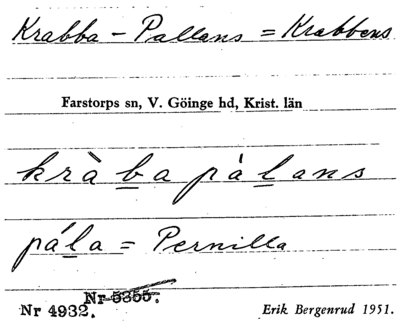 Krabba - Pallans = Krabbens
Farstorps sn, V. Göinge hd, Krist. län
kràba pàlans
pála = Pernilla
Nr 5355.
Nr 4932.
Erik Bergenrud 1951.